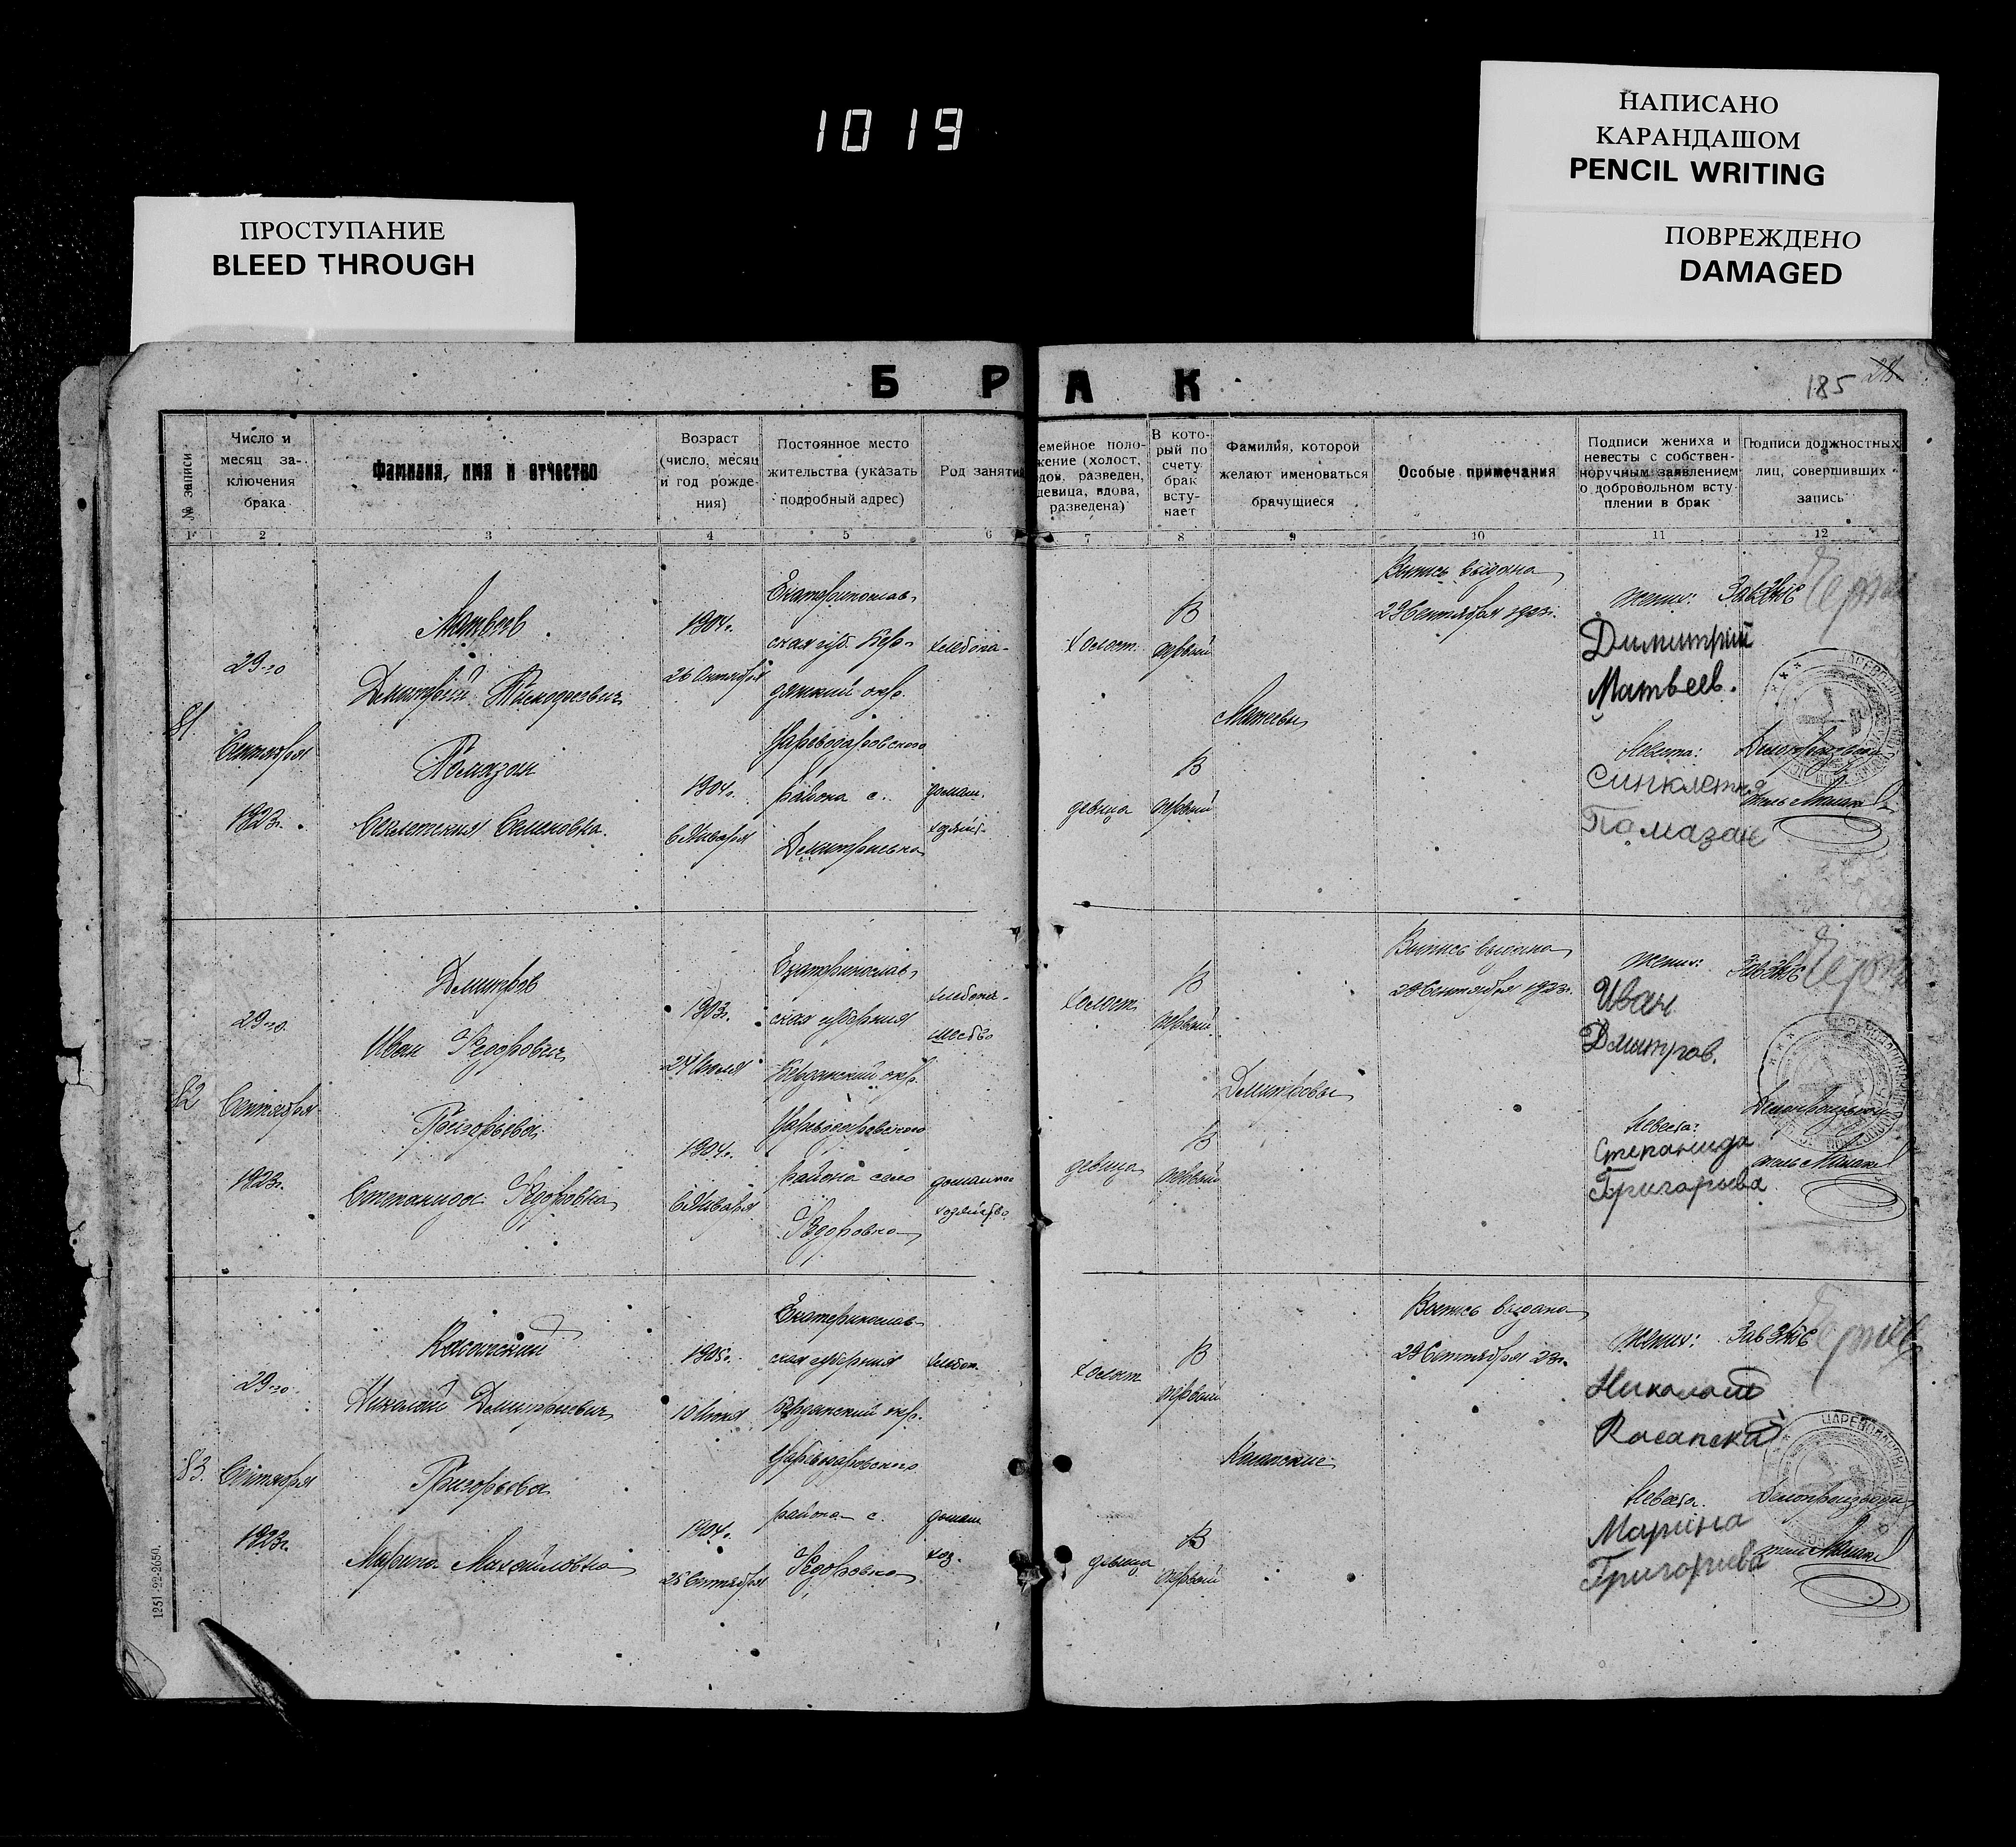 1019
НАПИСАНО
КАРАНДАШОМ
PENCIL WRITING
ПОВРЕЖДЕНО
DAMAGED
ПРОСТУПАНИЕ
BLEED THROUGH
БРАК
185 28
№ записи
Число и
месяц за-
ключения
брака
Фамилия, имя и отчество
Возраст
(число, месяц
и год рожде-
ния)
Постоянное место
жительства (указать
подробный адрес)
Род занятий
емейное поло-
жение (холост,
дов, разведен,
девица, вдова,
разведена)
В кото-
рый по
счету
брак
всту-
пает
Фамилия, которой
желают именоваться
брачущиеся
Особые примечания
Подписи жениха и
невесты с собствен-
норучным заявлением
о добровольном всту-
плении в брак
Подписи должностных
лиц, совершивших
запись
1 2 3 4 5 6 7 8 9 10 11 12
81
29-го
Сентября
1923г.
Матвеев
Дмитрий
Помазан
Семеновна
1904г.
26 Октября
1904г.
6 Января
Екатеринослав-
ская губ. Бер-
дянский окр.
Царедаровского
района с.
Дмитриевка
хлебопа-
домаш.
хозяйс.
холост
девица
В
первый
В
первый
Матвеевы
Выпись выдана
29 Сентября 1923г.
жених:
Димитрий
Матвеев.
Невеста:
Синклетия
Помазан
ЗавЗАГС
Делопроизводи
тель
82
29-го
Сентября
1923г.
Дмитров
Иван Федорович
Григорьева
Степанида Федоровна
1903г.
24 Июля
1904г.
6 Января
Екатеринослав-
ская губерния
Бердянский окр.
Царедаровского
района село
Федоровка
хлебопа-
шество
домашнее
хозяйство
холост
девица
В
первый
В
первый
Дмитровы
Выпись выдана
29 Сентября 1923г.
жених:
Иван
Дмитров.
Невеста:
Степанида
Григорьева
ЗавЗАГС
Делопроизводи
тель
83.
29-го
Сентября
1923г.
Николай Дмитриевич
Григорьева
Марина Михайловна
1905г.
10 Июня
1904г.
25 Сентября
Екатеринослав-
ская губерния
Бердянский окр.
Царедаровского
района с.
Федоровка
хлебоп.
домаш
хоз.
холост
девица
В
первый
В
первый
Выпись выдана
29 Сентября 23г.
жених:
Николай
Невеста.
Марина
Григориева
Зав ЗАГС
Делопроизводи
тель
1251-22-2650.